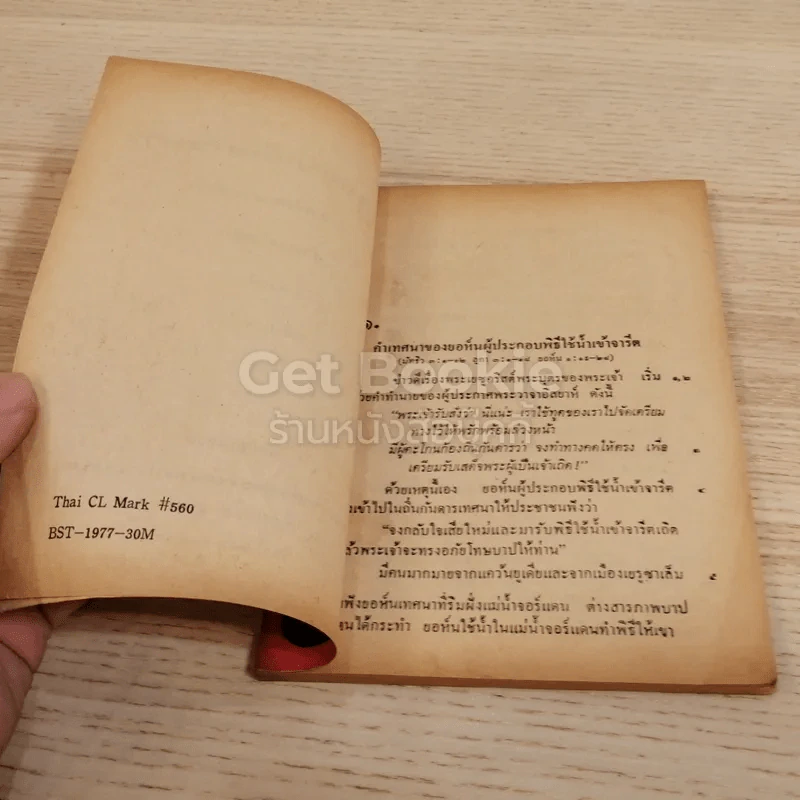 Thai CL Mark #560
BST-1977-30M
๑.
คำเทศนาของยอห์นผู้ประกอบพิธีใช้น้ำเข้าจารีต
(มัทธิว ๓:๑-๑๒ ลูกา ๓:๑-๑๘ ยอห์น ๑:๑๙-๒๘)
ข่าวดีเรื่องพระเยซูคริสต์พระบุตรของพระเจ้า เริ่ม ๑,๒
วยคำทำนายของผู้ประกาศพระวาจาอิสยาห์ ดังนี้
"พระเจ้ารับสั่งว่า นี่แน่ะ เราใช้ทูตของเราไปจัดเตรียม
ทางไว้ให้พรักพร้อมล่วงหน้า
มีผู้ตะโกนก้องถิ่นกันดารว่า จงทำทางคดให้ตรง เพื่อ ๓
เตรียมรับเสด็จพระผู้เป็นเจ้าเถิด!"
ด้วยเหตุนี้เอง ยอห์นผู้ประกอบพิธีใช้น้ำเข้าจารีต ๔
งเข้าไปในถิ่นกันดารเทศนาให้ประชาชนฟังว่า
"จงกลับใจเสียใหม่และมารับพิธีใช้น้ำเข้าจารีตเถิด
ล้วพระเจ้าจะทรงอภัยโทษบาปให้ท่าน"
มีคนมากมายจากแคว้นยูเดียและจากเมืองเยรูซาเล็ม ๕
ฟังยอห์นเทศนาที่ริมฝั่งแม่น้ำจอร์แดน ต่างสารภาพบาป
นได้กระทำ ยอห์นใช้น้ำในแม่น้ำจอร์แดนทำพิธีให้เขา
Get Bookie
ร้านหนังสือบุ๊กกี้